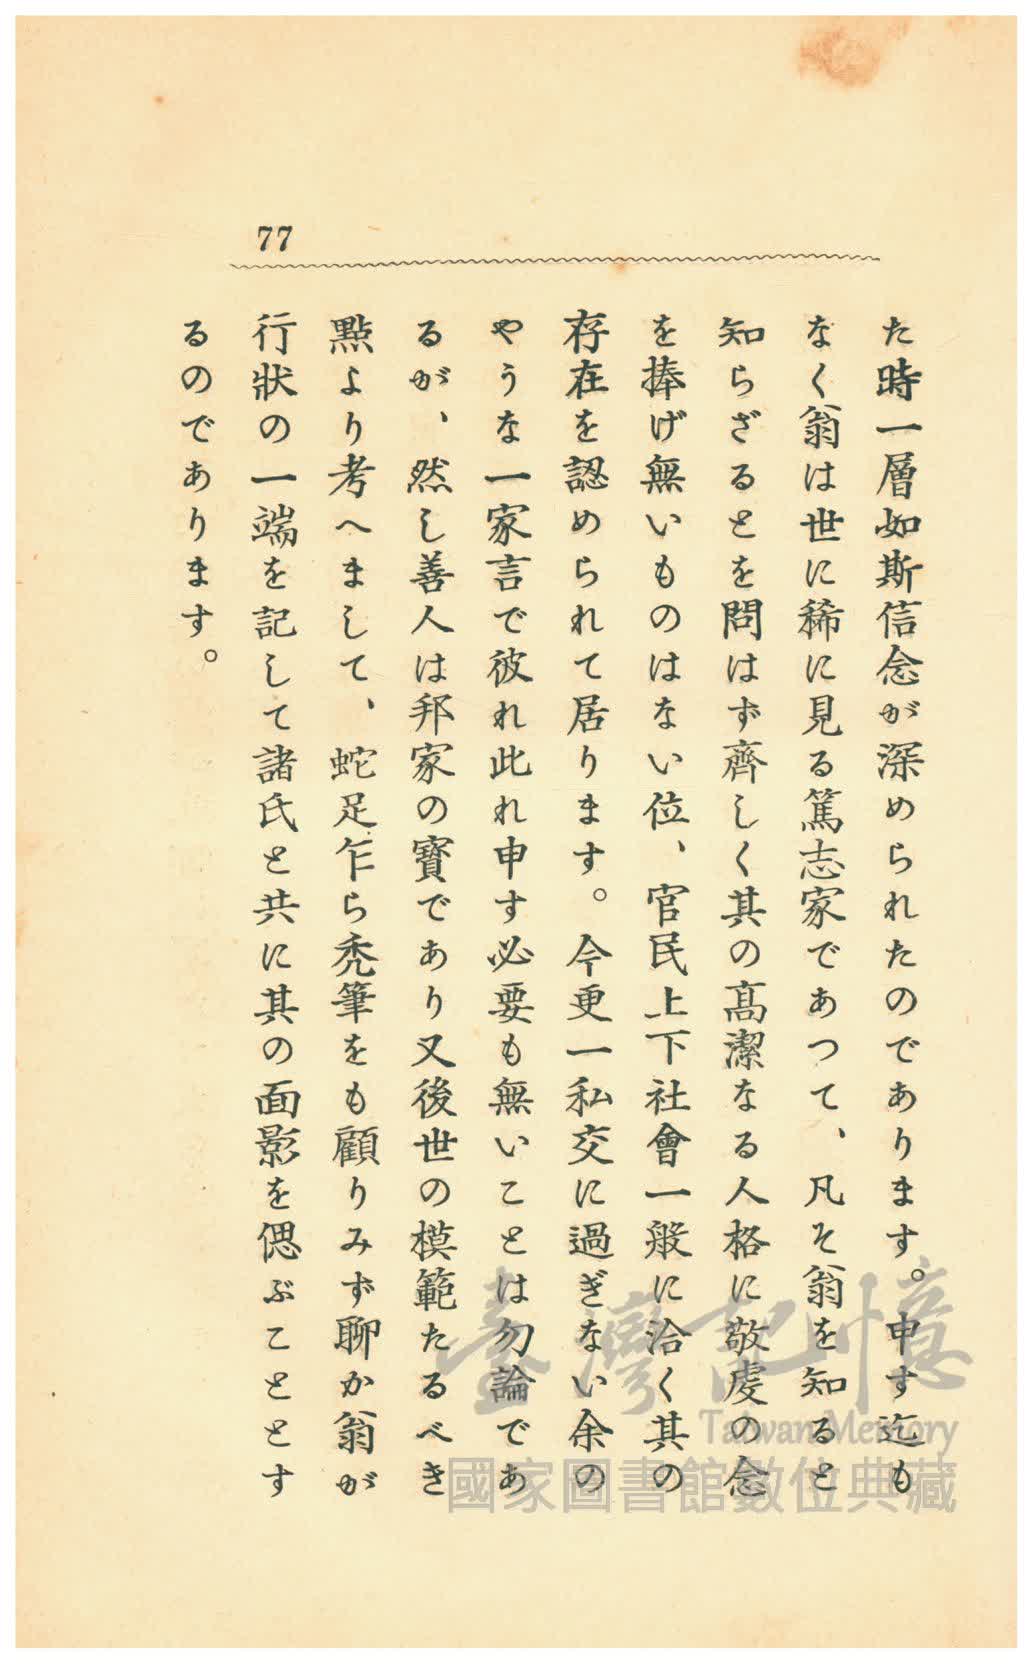 77
た時一層如斯信念が深められたのであります。申す迄も
なく翁は世に稀に見る篤志家であつて、凡そ翁を知ると
知らざるとを問はず齊しく其の高潔なる人格に敬虔の念
を捧げ無いものはない位、官民上下社會一般に洽く其の
存在を認められて居ります。今更一私交に過ぎない余の
やうな一家言で彼れ此れ申す必要も無いことは勿論であ
るが、然し善人は邦家の寶であり又後世の模範たるべき
點より考へまして、蛇足乍ら禿筆をも顧りみず聊か翁が
行狀の一端を記して諸氏と共に其の面影を偲ぶこととす
るのであります。
臺灣記憶
Taiwan Memory
國家圖書館數位典藏